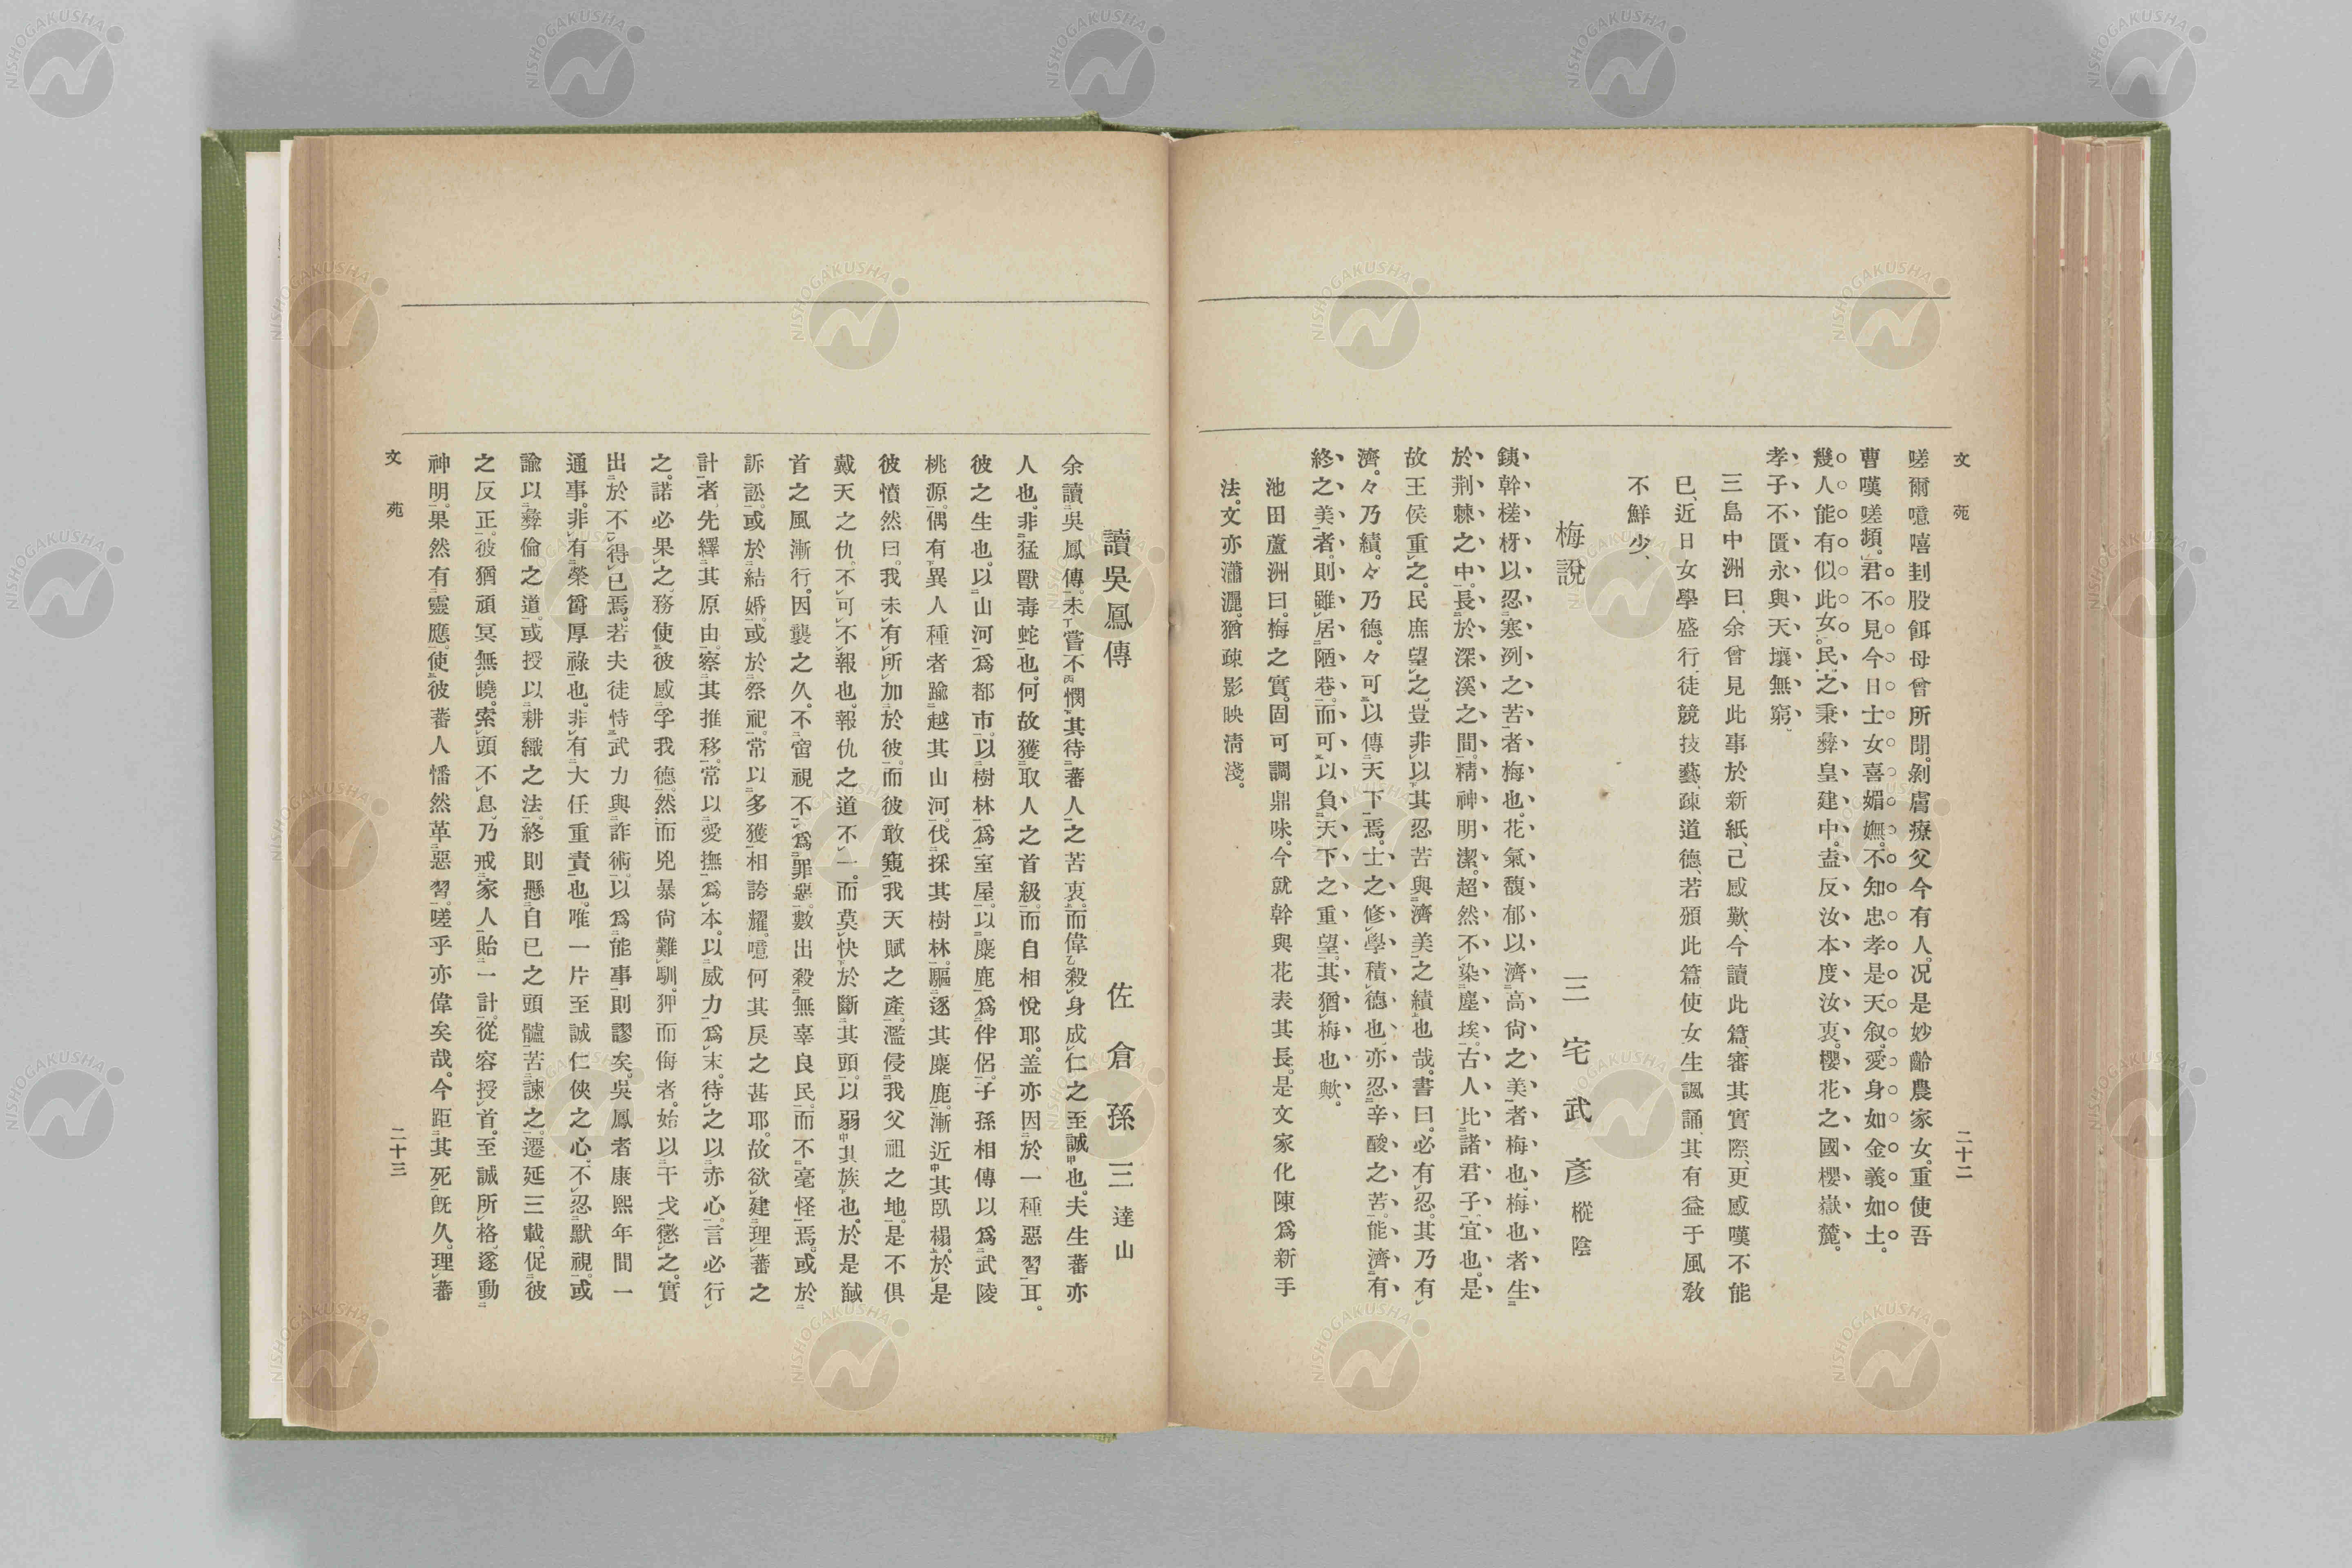 文苑
二十二
嗟爾噫嘻刲股餌母曾所聞。剝膚療父今有人。況是妙齡農家女。重使吾
曹嘆嗟頻。君不見今日士女喜媚嫵。不知忠孝是天叙。愛身如金義如土。
幾人能有似此女。民之秉彝皇建中。盍反汝本度汝衷。櫻花之國櫻嶽麓。
孝子不匱永與天壤無窮、
三島中洲曰、余曾見此事於新紙、己感歎、今讀此篇、審其實際、更感嘆不能
已、近日女學盛行、徒競技藝、疎道德、若頒此篇、使女生諷誦、其有益于風敎
不鮮少、
梅說
三宅武彥 樅陰
鐵幹槎枒以忍寒冽之苦者梅也。花氣馥郁以濟高尙之美者梅也。梅也者生二
於荆棘之中。長二於深溪之間。精神明潔。超然不レ染塵埃。古人比諸君子宜也。是
故王侯重レ之。民庶望レ之。豈非以其忍苦與濟美之績也哉。書曰。必有レ忍。其乃有レ
濟。々乃績。々乃德。々可以傳天下焉。士之修學積德也。亦忍辛酸之苦。能濟有
終之美者。則雖居陋巷。而可以負天下之重望。其猶梅也歟。
池田蘆洲曰。梅之實。固可調鼎味。今就幹與花表其長。是文家化陳爲新手
法。文亦瀟灑。猶疎影映淸淺。
讀吳鳳傳
佐倉孫三 達山
余讀吳鳳傳。未嘗不憫其待蕃人之苦衷。而偉殺身成仁之至誠也。夫生蕃亦
人也。非猛獸毒蛇也。何故獲取人之首級。而自相悅耶。盖亦因於一種惡習耳。
彼之生也。以山河爲都市。以樹林爲室屋。以麋鹿爲伴侶。子孫相傳以爲武陵
桃源。偶有異人種者踰越其山河。伐採其樹林。驅逐其麋鹿。漸近其臥榻。於是
彼憤然曰。我未有所加於彼。而彼敢窺我天賦之產。濫侵我父祖之地。是不俱
戴天之仇。不可不報也。報仇之道不一。而莫快於斷其頭。以弱其族也。於是馘
首之風漸行。因襲之久。不啻視不爲罪惡。數出殺無辜良民。而不毫怪焉。或於
訴訟。或於結婚。或於祭祀。常以多獲相誇耀。噫何其戾之甚耶。故欲建理蕃之
計者、先繹其原由。察其推移。常以愛撫爲本。以威力爲末。待之以赤心。言必行
之。諾必果之。務使彼感孚我德。然而兇暴尙難馴。狎而侮者。始以干戈懲之。實
出於不得已焉。若夫徒恃武力與詐術。以爲能事。則謬矣。吳鳳者康熙年間一
通事。非有榮爵厚祿也。非有大任重責也。唯一片至誠仁俠之心。不忍默視。或
諭以彝倫之道。或授以耕織之法。終則懸自已之頭髗苦諫之。遷延三載。促彼
之反正。彼猶頑冥無曉。索頭不息。乃戒家人貽一計。從容授首。至誠所格。遂動
神明。果然有靈應。使彼蕃人幡然革惡習。嗟乎亦偉矣哉。今距其死旣久。理蕃
文苑
二十三